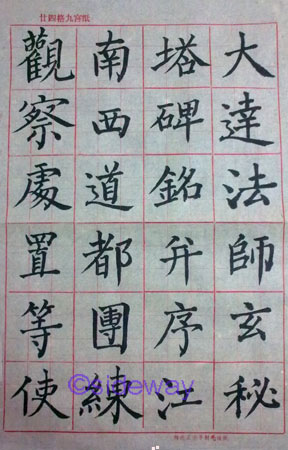 廿四格九宮紙
大達法師玄秘
塔碑銘并序江
南西道都團練
觀察處置等使
©sideway